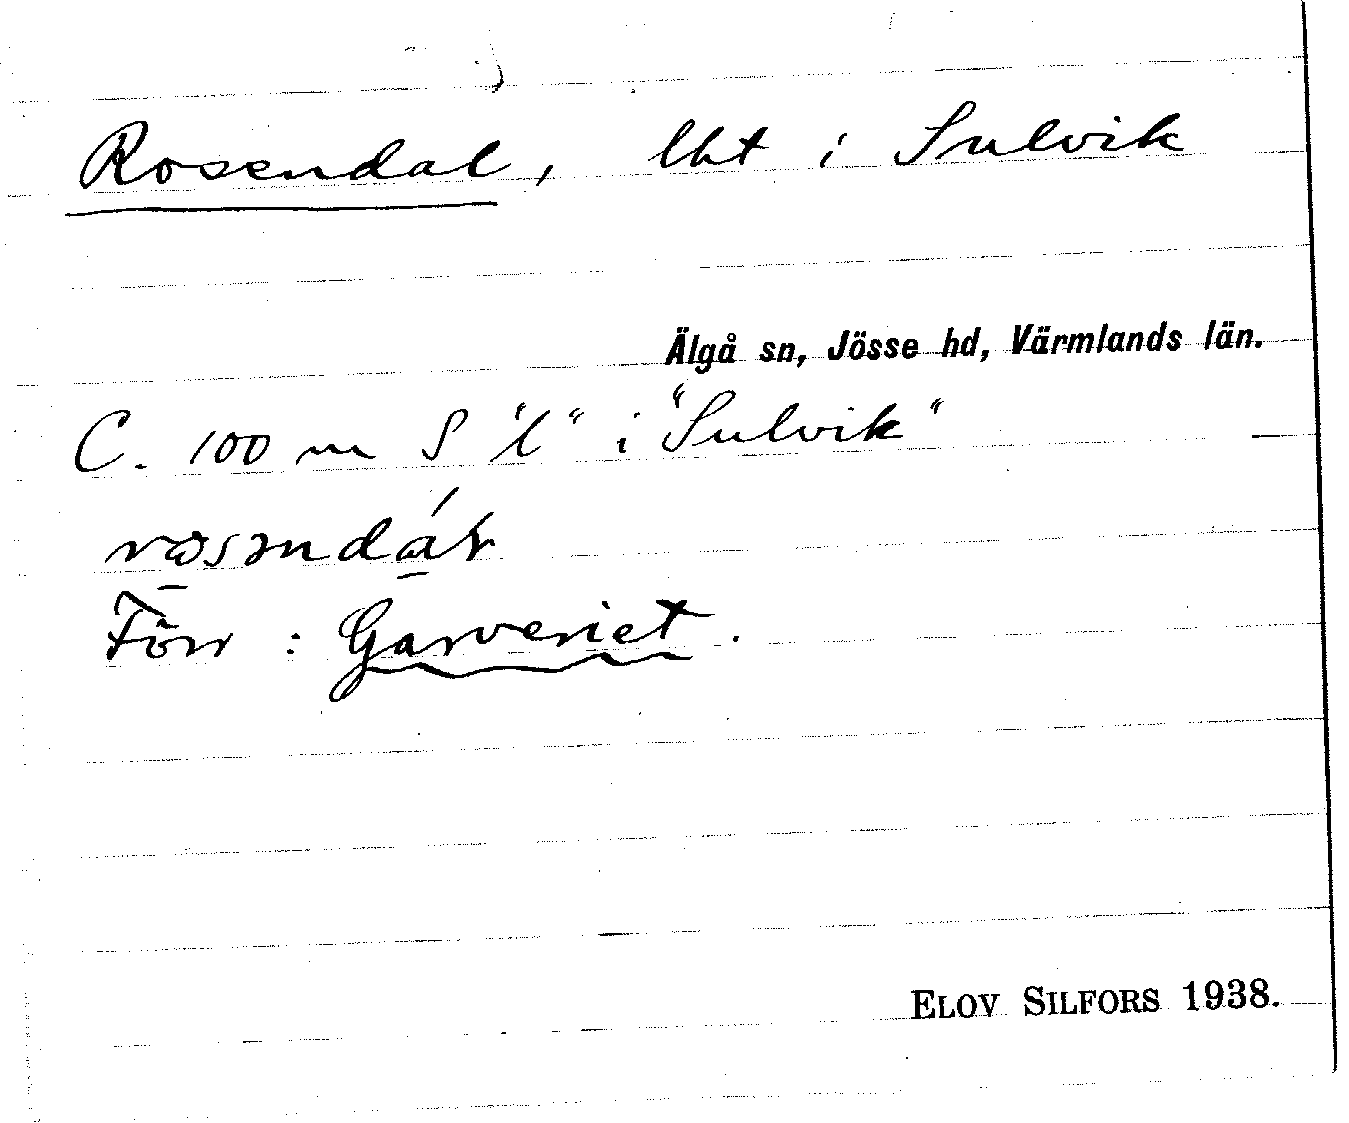 Rosendal, lht i Sulvik
Älgå sn, Jösse hd, Värmlands län.
C. 100 m S "l" i "Sulvik"
Förr: Garveriet.
ELOV SILFORS 1938.